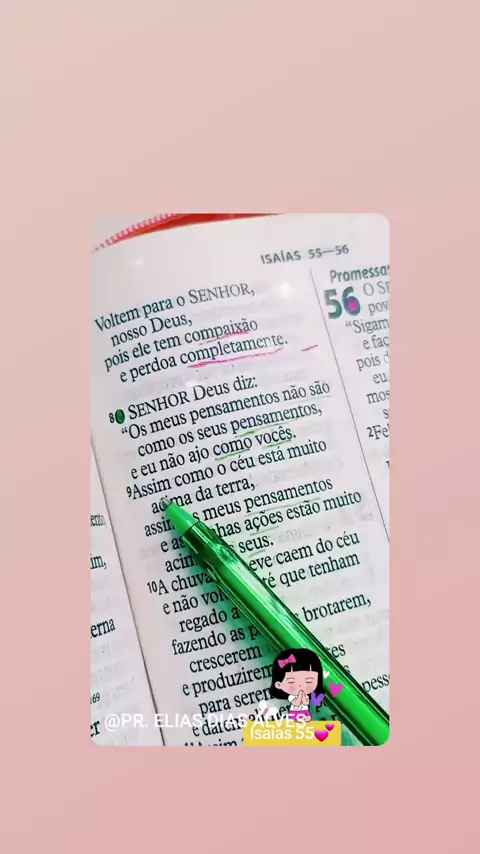 ISAÍAS 55—56
Voltem para o SENHOR,
nosso Deus,
pois ele tem compaixão
e perdoa completamente.
8 O SENHOR Deus diz:
“Os meus pensamentos não são
como os seus pensamentos,
e eu não ajo como vocês.
9Assim como o céu está muito
acima da terra,
meus pensamentos
ações estão muito
seus.
10A chuva eve caem do céu
e não té que tenham
regado a brotarem,
fazendo as
crescerem
e produzirem
para
e darem
Promessas
56 O
“Sigam
e
pois
eu
@PR. ELIAS DIAS ALVES
Isaías 55